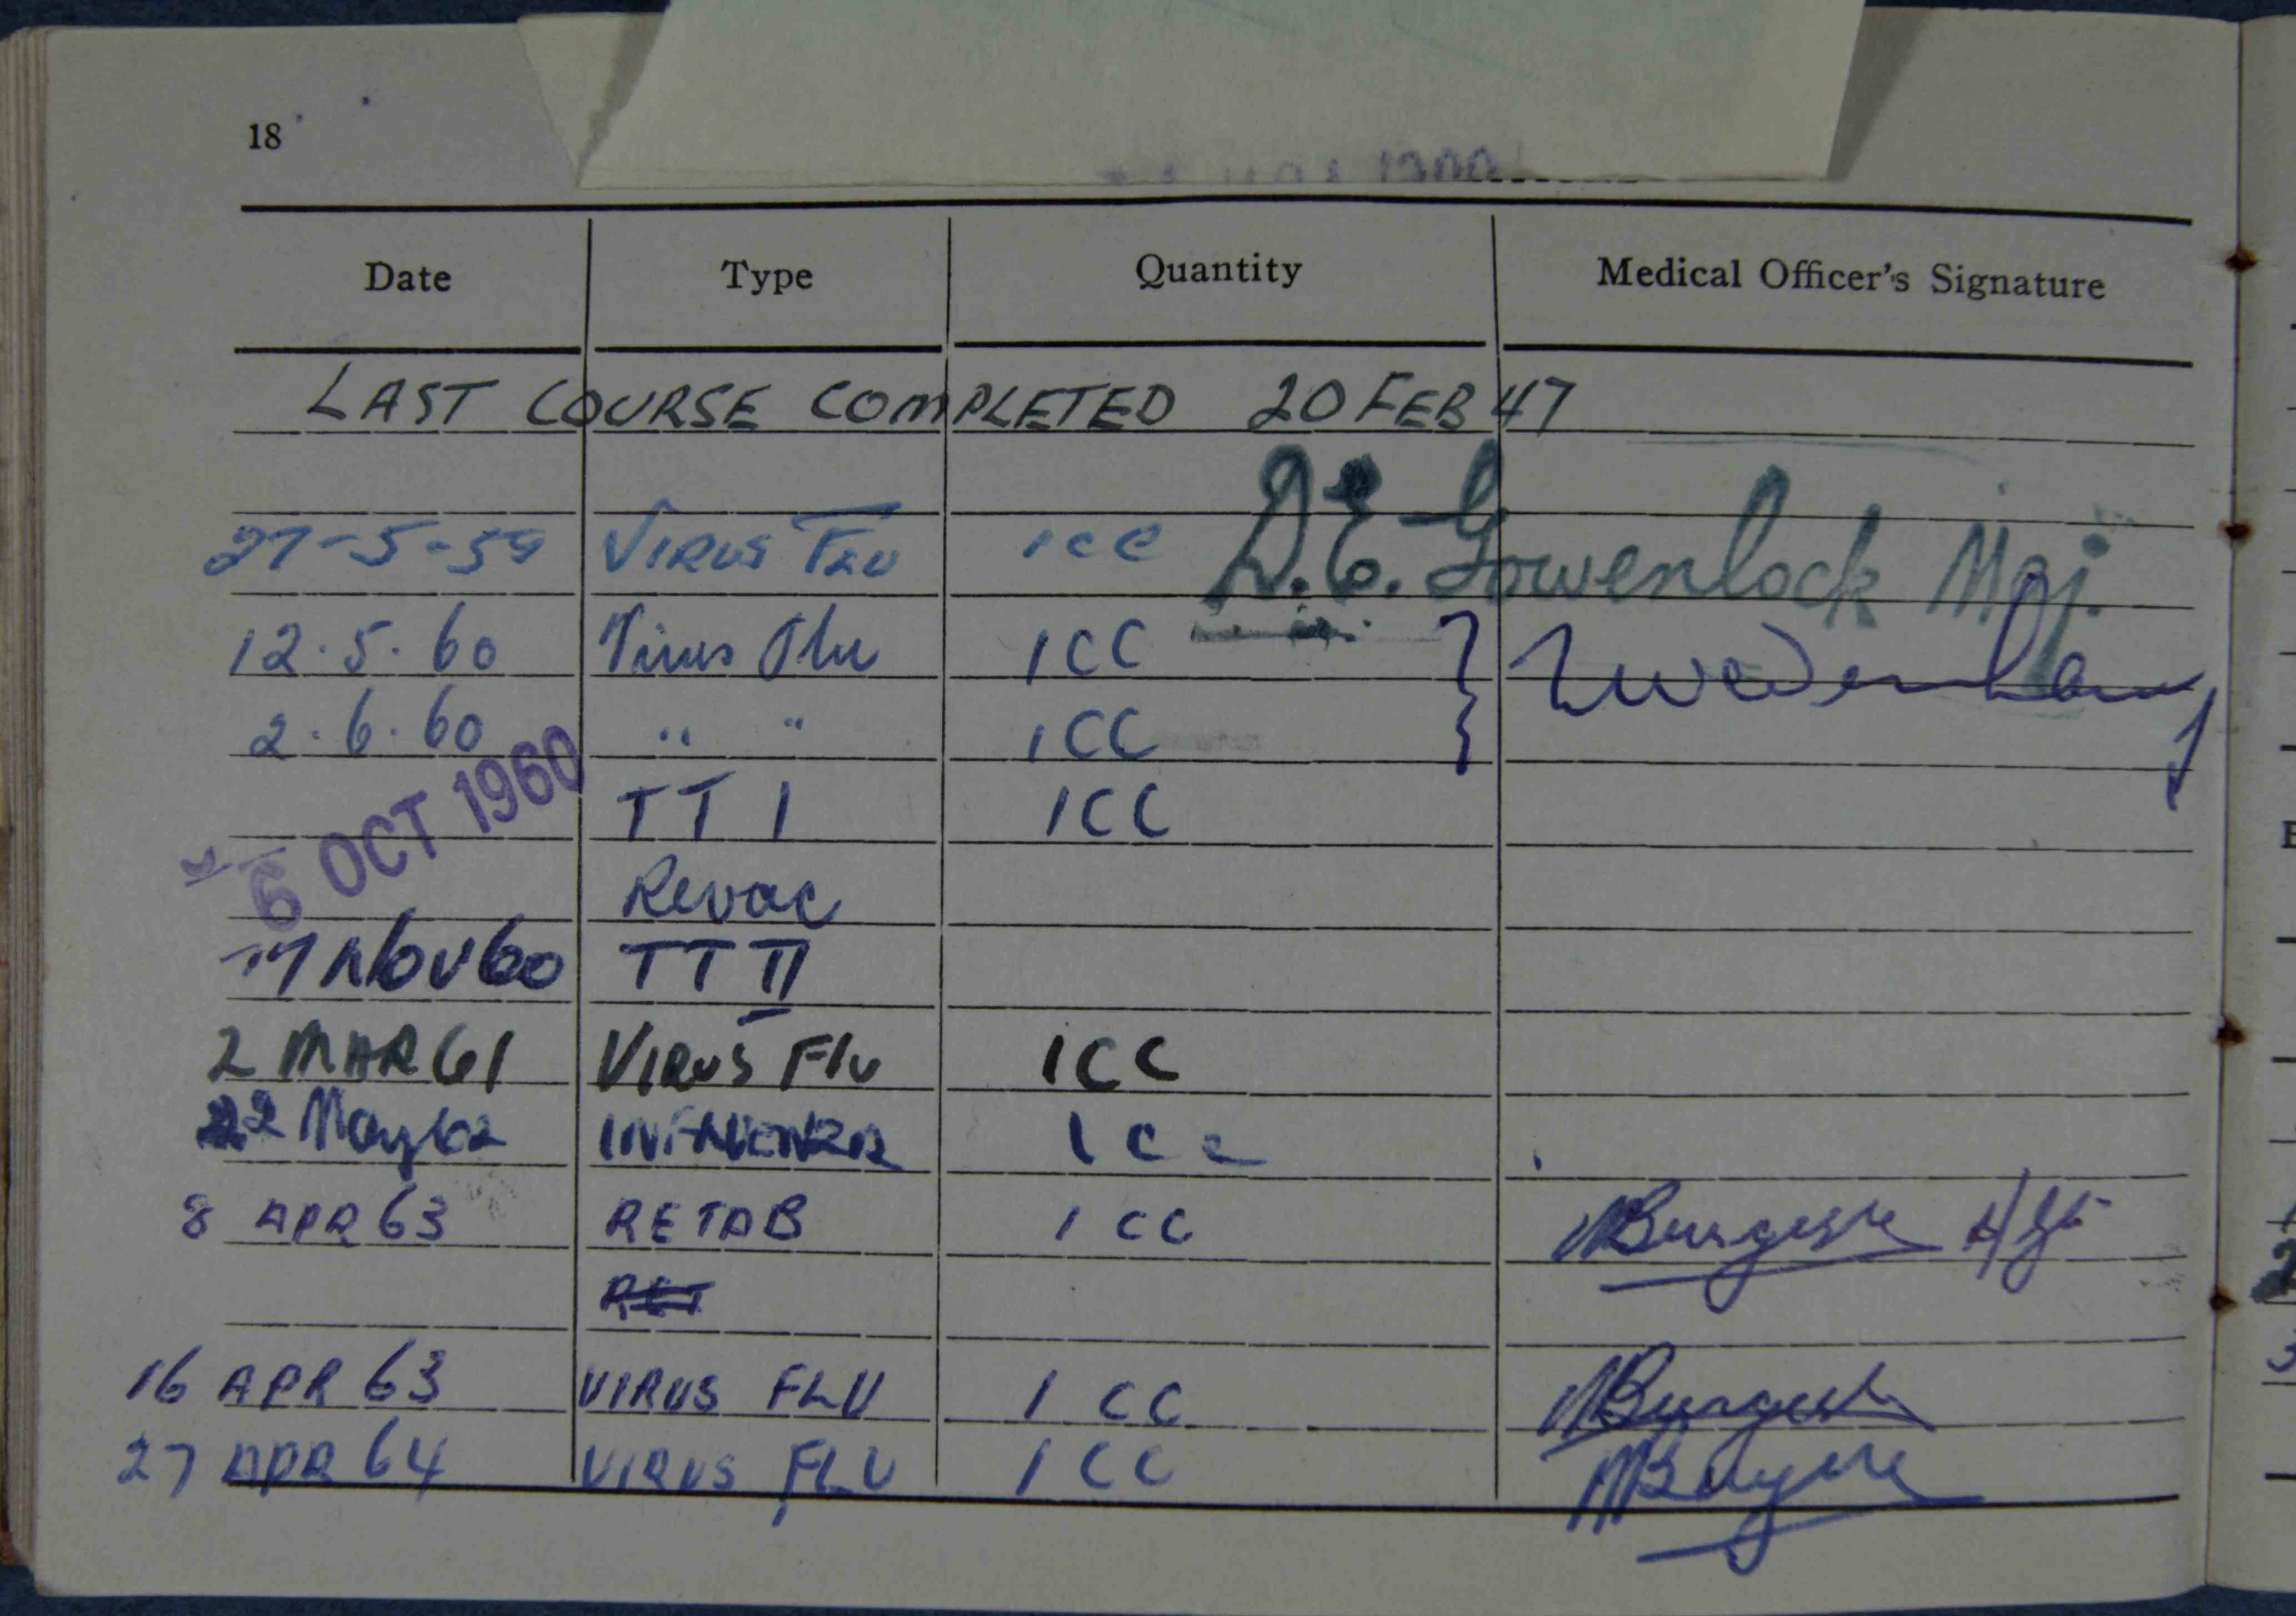 18
Date Type Quantity Medical Officer's Signature
LAST COURSE COMPLETED 20 FEB 47
27-5-59 VIRUS FLU 1CC D.E. Gowenlock Maj.
12.5.60 Virus Flu 1CC
2.6.60 " " 1CC
6 OCT 1960 TT 1 1CC
Revac
Nov 60 TT II
2 MAR 61 VIRUS Flu 1CC
22 May 62 INFLUENZA 1cc
8 APR 63 RETAB 1 CC Burgess
RET
16 APR 63 VIRUS FLU 1 CC Burgess
27 APR 64 VIRUS FLU 1 CC Burgess